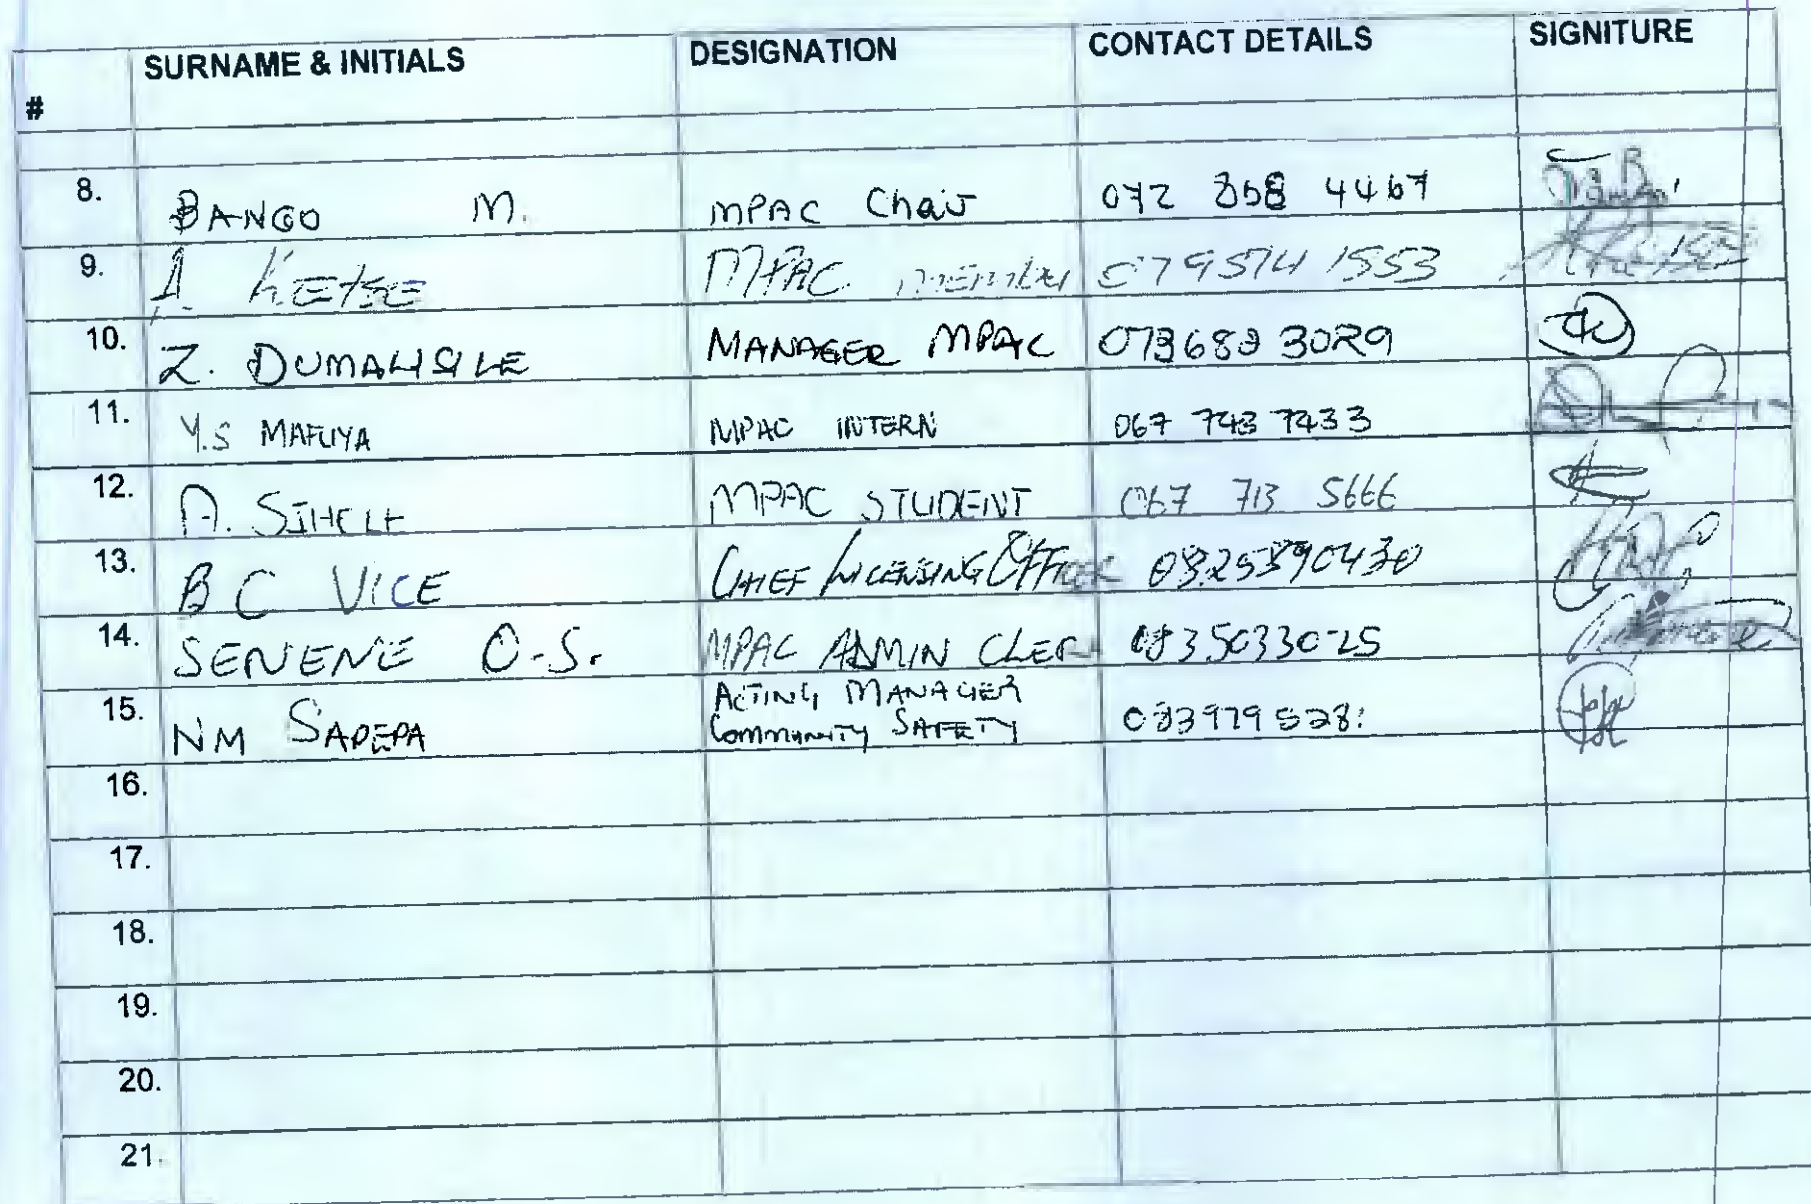 # SURNAME & INITIALS DESIGNATION CONTACT DETAILS SIGNITURE
8. BANGO M. MPAC Chair 072 868 4467
9. A KETSE MPAC member 079 574 1553
10. Z. DUMALISILE MANAGER MPAC 073682 3029
11. Y.S MAFUYA MPAC INTERN 067 743 7433
12. A. SIHELE MPAC STUDENT 067 713 5666
13. B C VICE CHIEF LICENSING OFFICER 0825590430
14. SENENE O.S. MPAC ADMIN CLERK 0835033025
15. NM SAPEPA ACTING MANAGER
COMMUNITY SAFETY
16.
17.
18.
19.
20.
21.